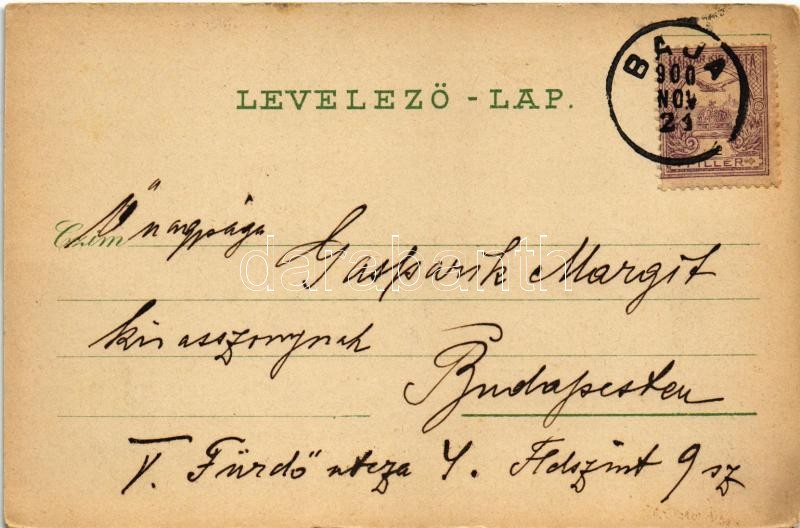 LEVELEZŐ - LAP.
BAJA
900
NOV
21
FILLÉR
Czím
Ő nagysága
Gasparik Margit
kisasszonynak
Budapesten
V. Fürdő utcza 4. Fldszint 9 sz
darabanth